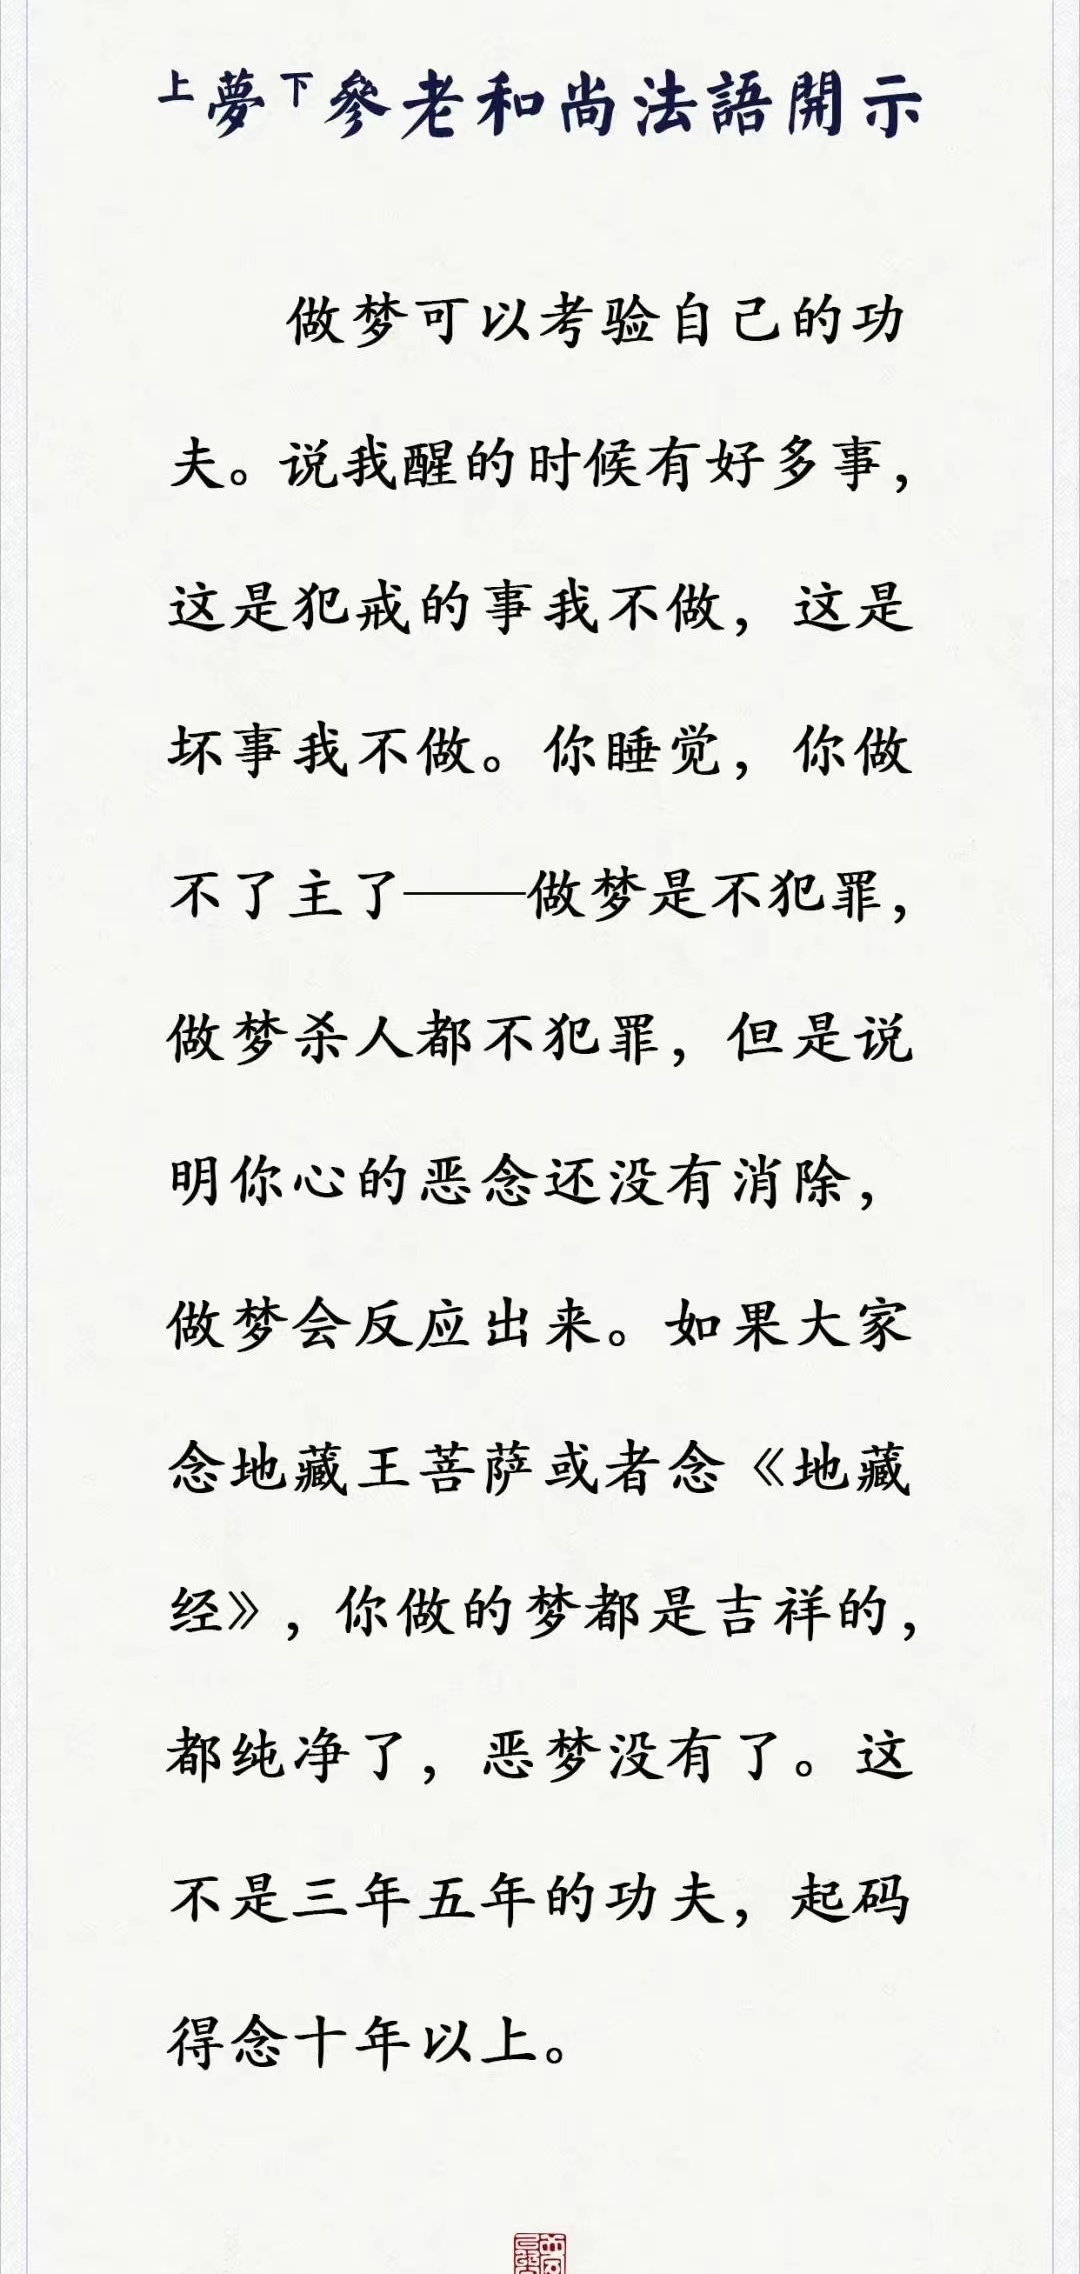 上夢下參老和尚法語開示
做梦可以考验自己的功
夫。说我醒的时候有好多事，
这是犯戒的事我不做，这是
坏事我不做。你睡觉，你做
不了主了——做梦是不犯罪，
做梦杀人都不犯罪，但是说
明你心的恶念还没有消除，
做梦会反应出来。如果大家
念地藏王菩萨或者念《地藏
经》，你做的梦都是吉祥的，
都纯净了，恶梦没有了。这
不是三年五年的功夫，起码
得念十年以上。